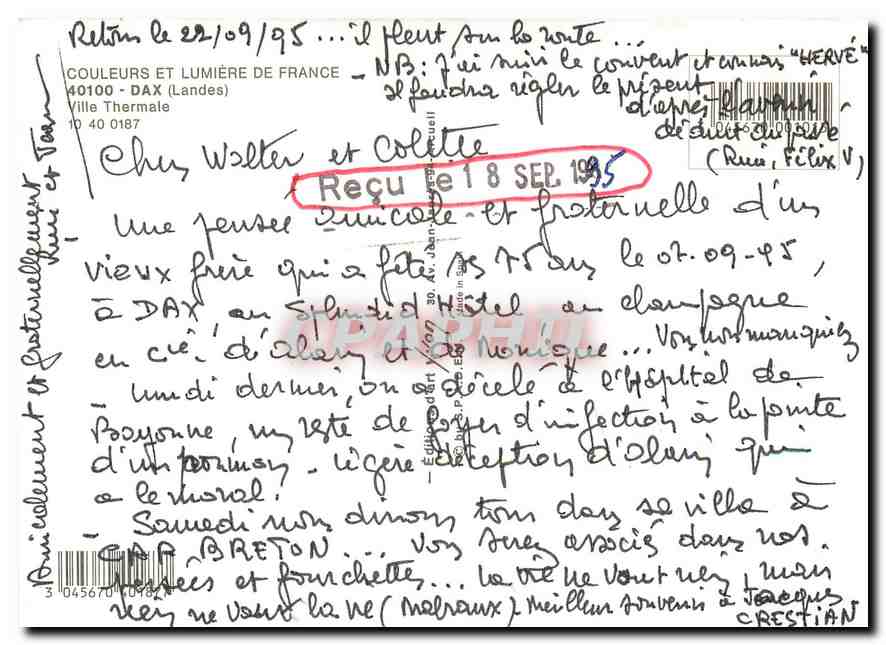 Retour le 22/09/95 ... il pleut sur la route ...
COULEURS ET LUMIÈRE DE FRANCE
40100 - DAX (Landes)
Ville Thermale
10 40 0187
- NB: J'ai suivi le convent et connais "HERVÉ"
Il faudra régler le présent
d'après l'avenir
déduit du passé
(Rui, Félix V)
Chers Walter et Colette
Reçu le 18 SEP. 1995
Une pensée amicale et fraternelle d'un
vieux frère qui a fêté ses 75 ans le 07-09-95,
à DAX, au Splendid Hôtel au champagne
en cie d'Alain et de Monique ... Vous nous manquiez
- Lundi dernier, on a décelé à l'Hôpital de
Bayonne, un reste de foyer d'infection à la pointe
d'un poumon - légère déception d'Alain qui
a le moral.
- Samedi nous dînons tous dans sa villa à
CAP BRETON ... Vous serez associés dans nos
pensées et fourchettes ... La vie ne vaut rien, mais
rien ne vaut la vie (Malraux) - Meilleur souvenir à Jacques
CRESTIAN
Amicalement et fraternellement
Editions d'art
30. Av. Jean
Made in Spain
CPAPHIL
3 045670 401827